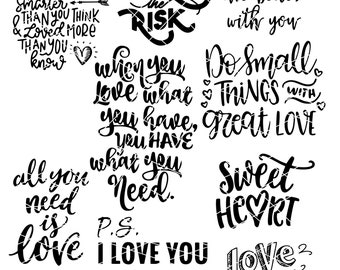 smarter
& THAN YOU THINK
& Loved MORE
THAN YOU
know
the
RISK
with you
when you
Love what
you have,
you HAVE
what you
Need.
Do Small
THINGS WITH
great LOVE
all you
need
is
love
Sweet
HEART
P.S.
I LOVE YOU
love